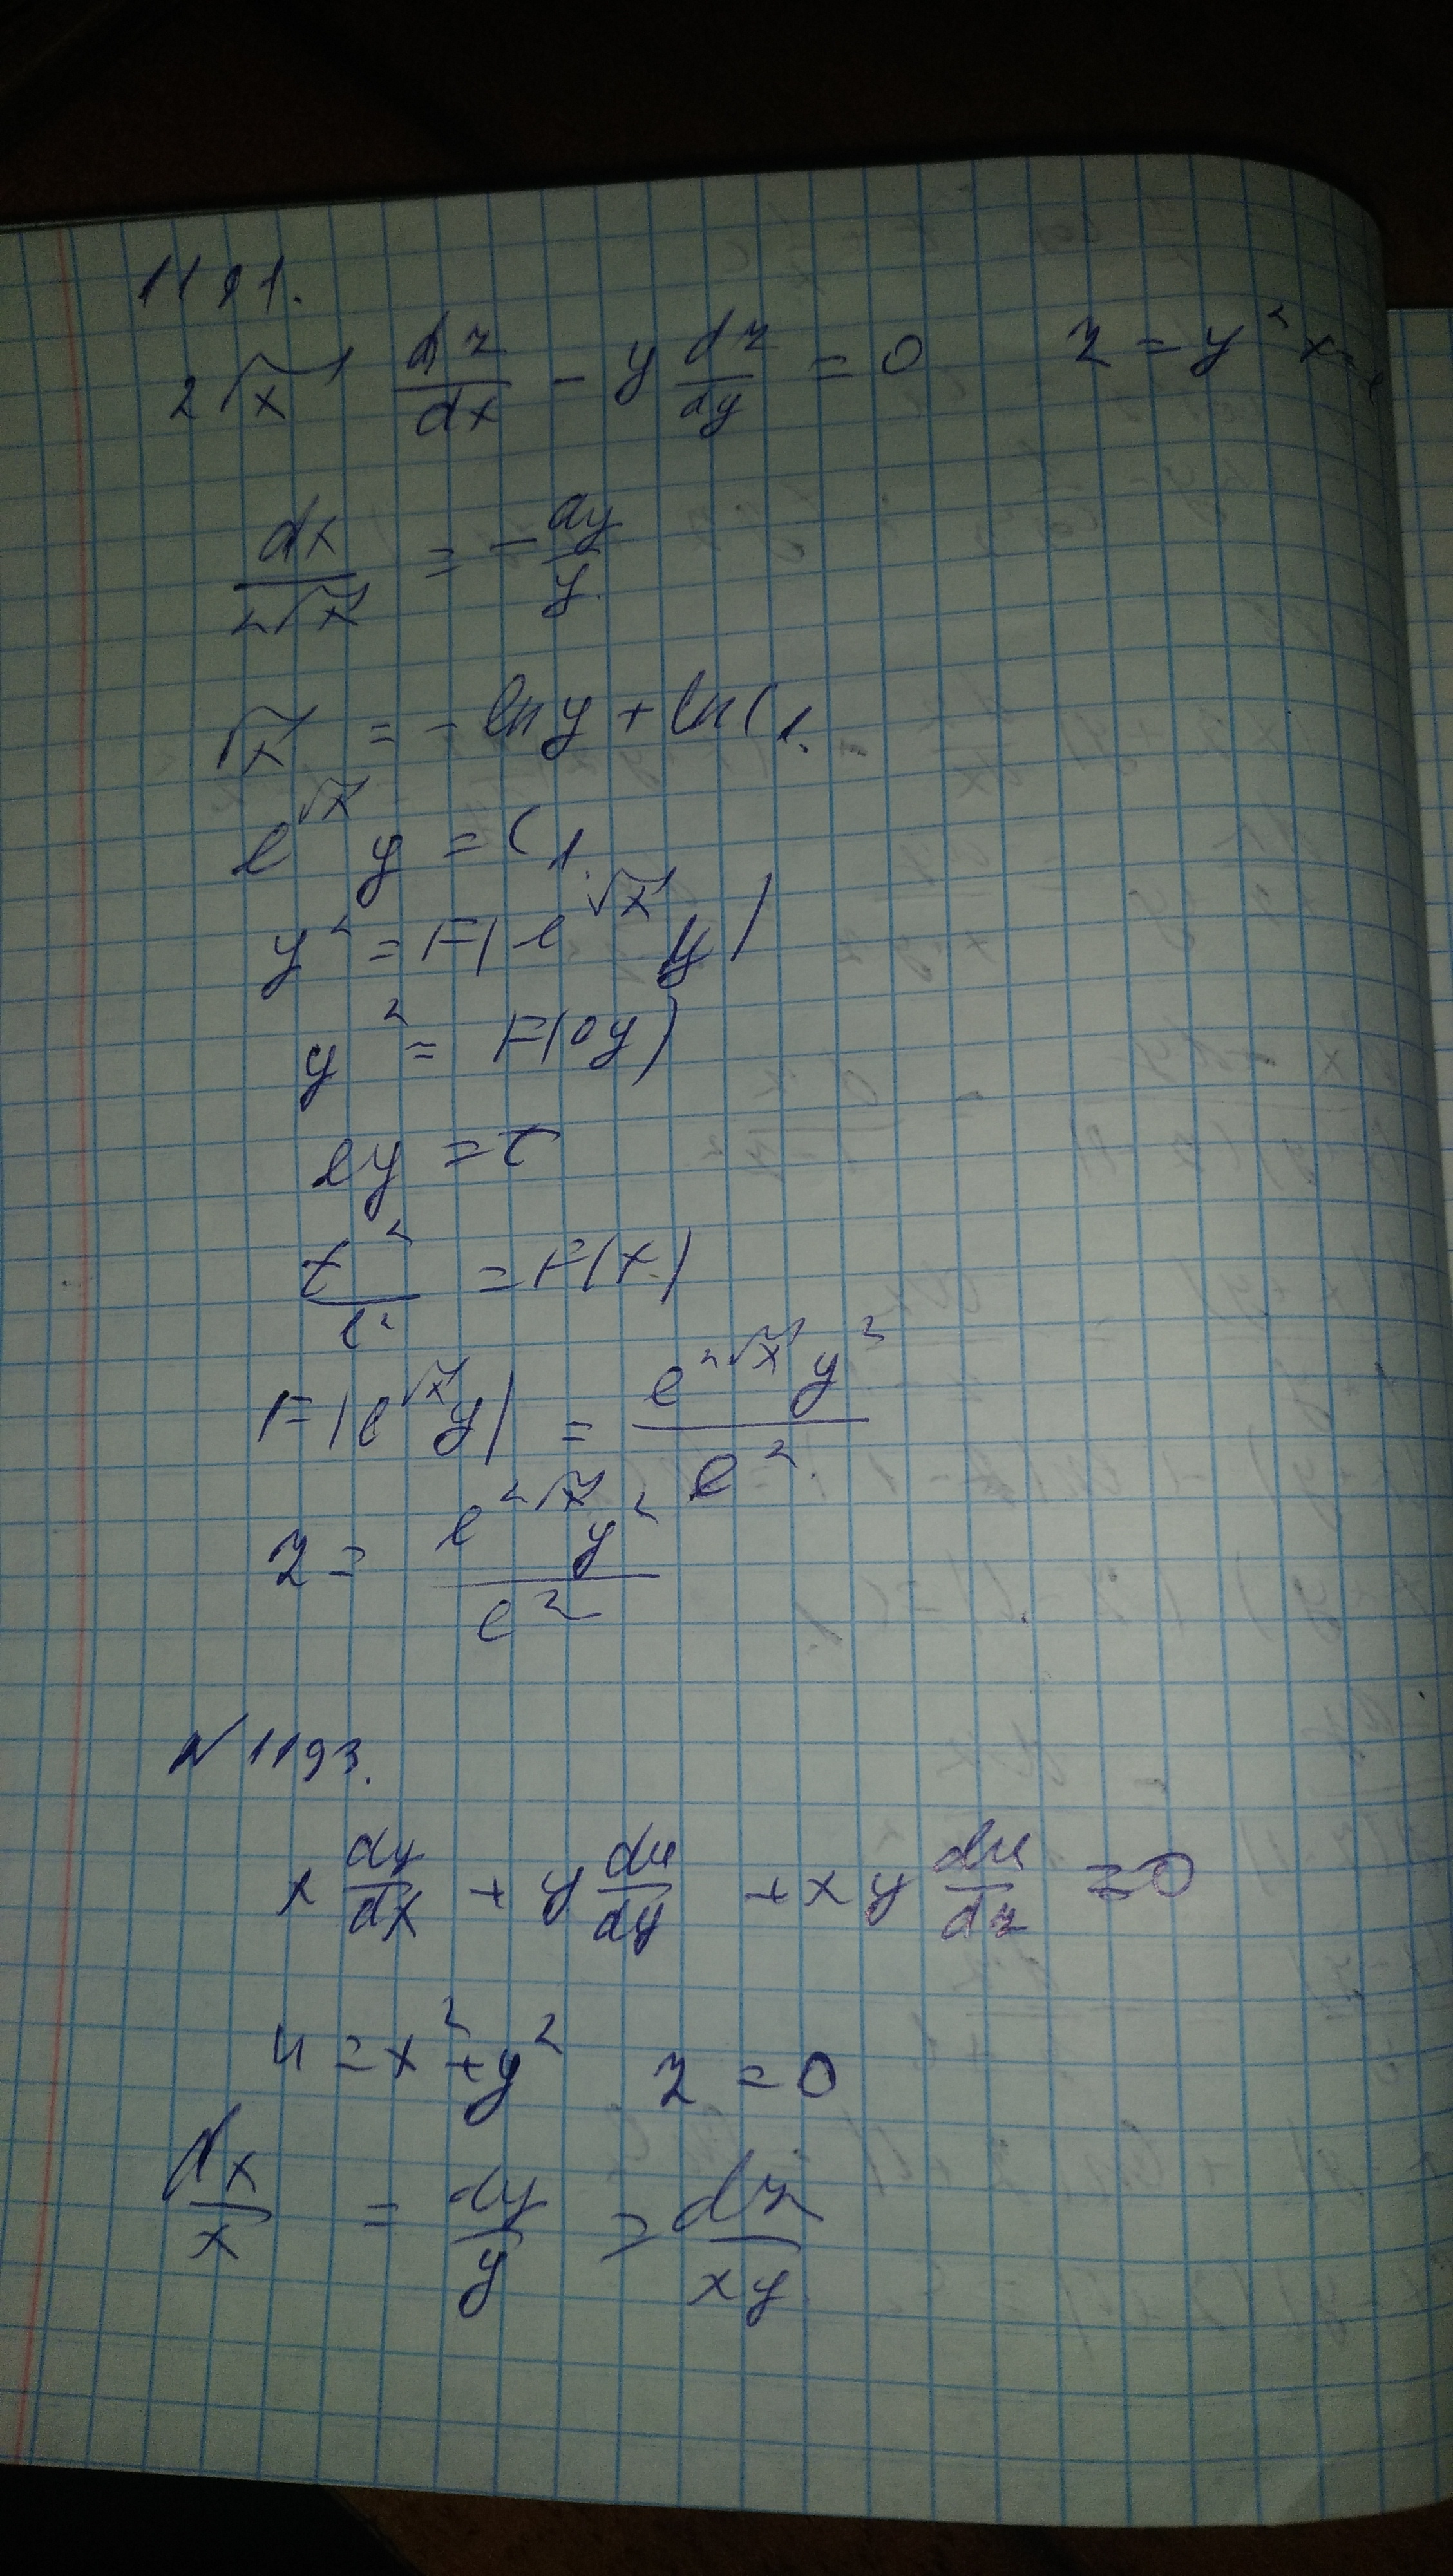 1191.
2√x dz/dx - y dz/dy = 0 z = y² x=1
dx/2√x = - dy/y.
√x = - ln y + ln C₁.
e^√x y = C₁.
y² = F(e^√x y)
y² = F(ey)
ey = t
t²/e² = F(t)
F(e^√x y) = e^2√x y²/e².
z = e^2√x y²/e²
N 1193.
x dy/dx + y du/dy + xy du/dz = 0
u = x² + y² z = 0
dx/x = dy/y = dz/xy